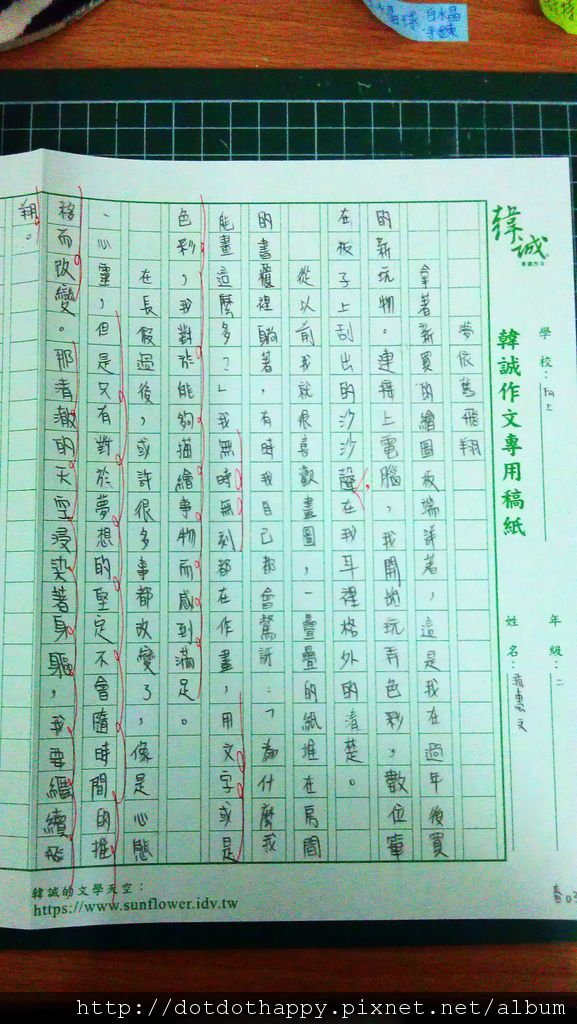 白水晶
手鍊
韓誠
韓誠作文專用稿紙
學校：
年級：二
姓名：
夢依舊飛翔
拿著新買的繪圖板端詳著，這是我在過年後買
的新玩物。連接上電腦，我開始玩弄色彩，數位筆
在板子上刮出的沙沙聲在我耳裡格外的清楚。
從以前我就很喜歡畫圖，一疊疊的紙堆在房間
的書櫃裡躺著，有時我自己都會驚訝：「為什麼我
能畫這麼多？」我無時無刻都在作畫，用文字或是
色彩，我對於能夠描繪事物而感到滿足。
在長假過後，或許很多事都改變了，像是心態
、心靈，但是只有對於夢想的堅定不會隨時間的推
移而改變。那清澈的天空浸染著身軀，我要繼續飛
翔。
韓誠的文學天空：
https://www.sunflower.idv.tw
http://dotdothappy.pixnet.net/album